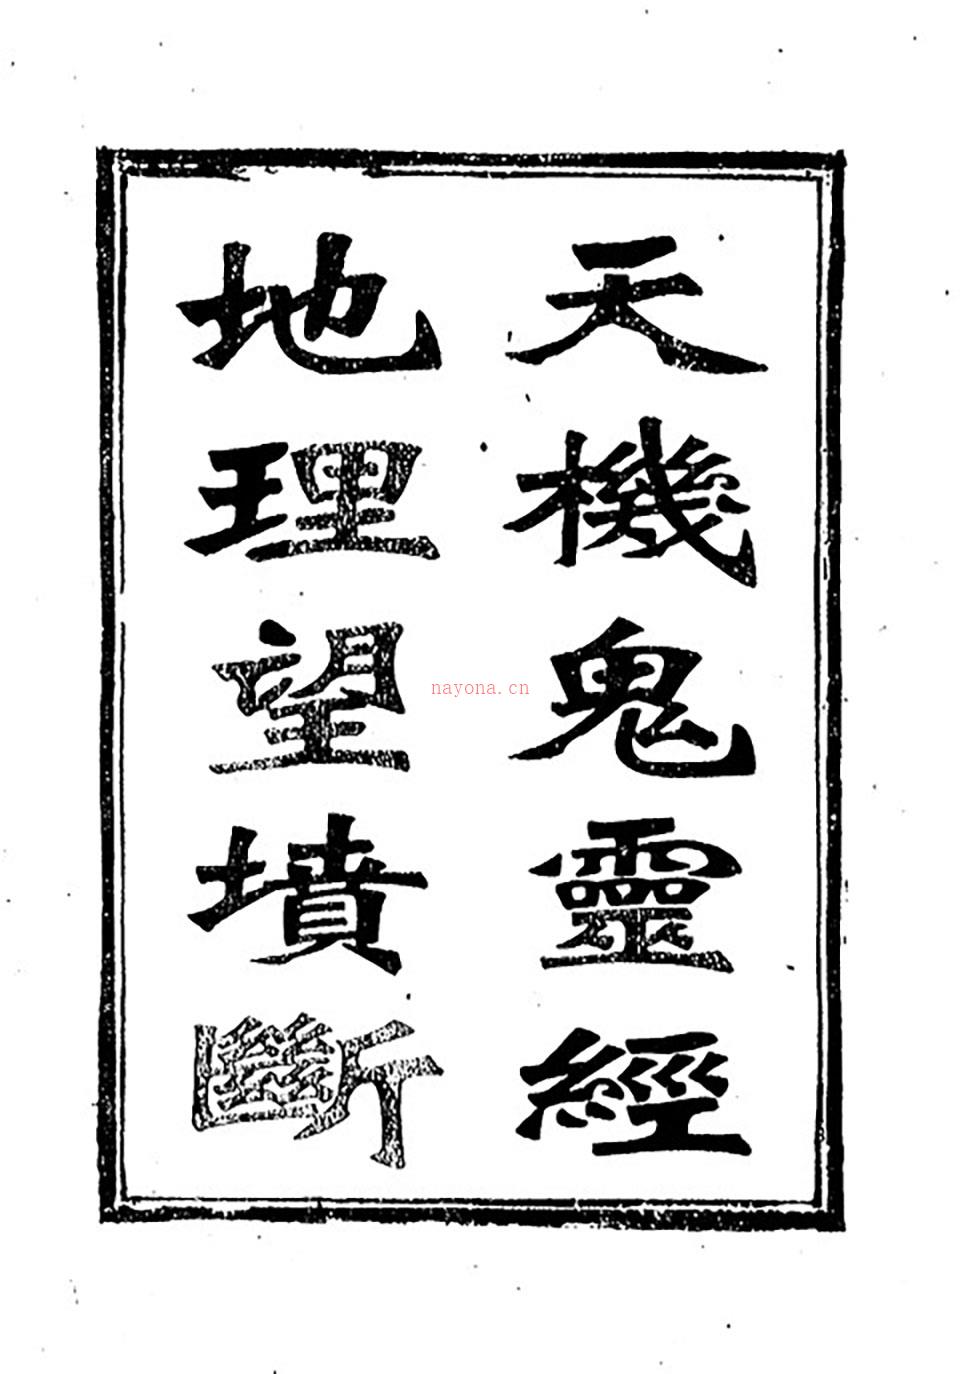 天機鬼靈經
地理望墳斷
nayona.cn